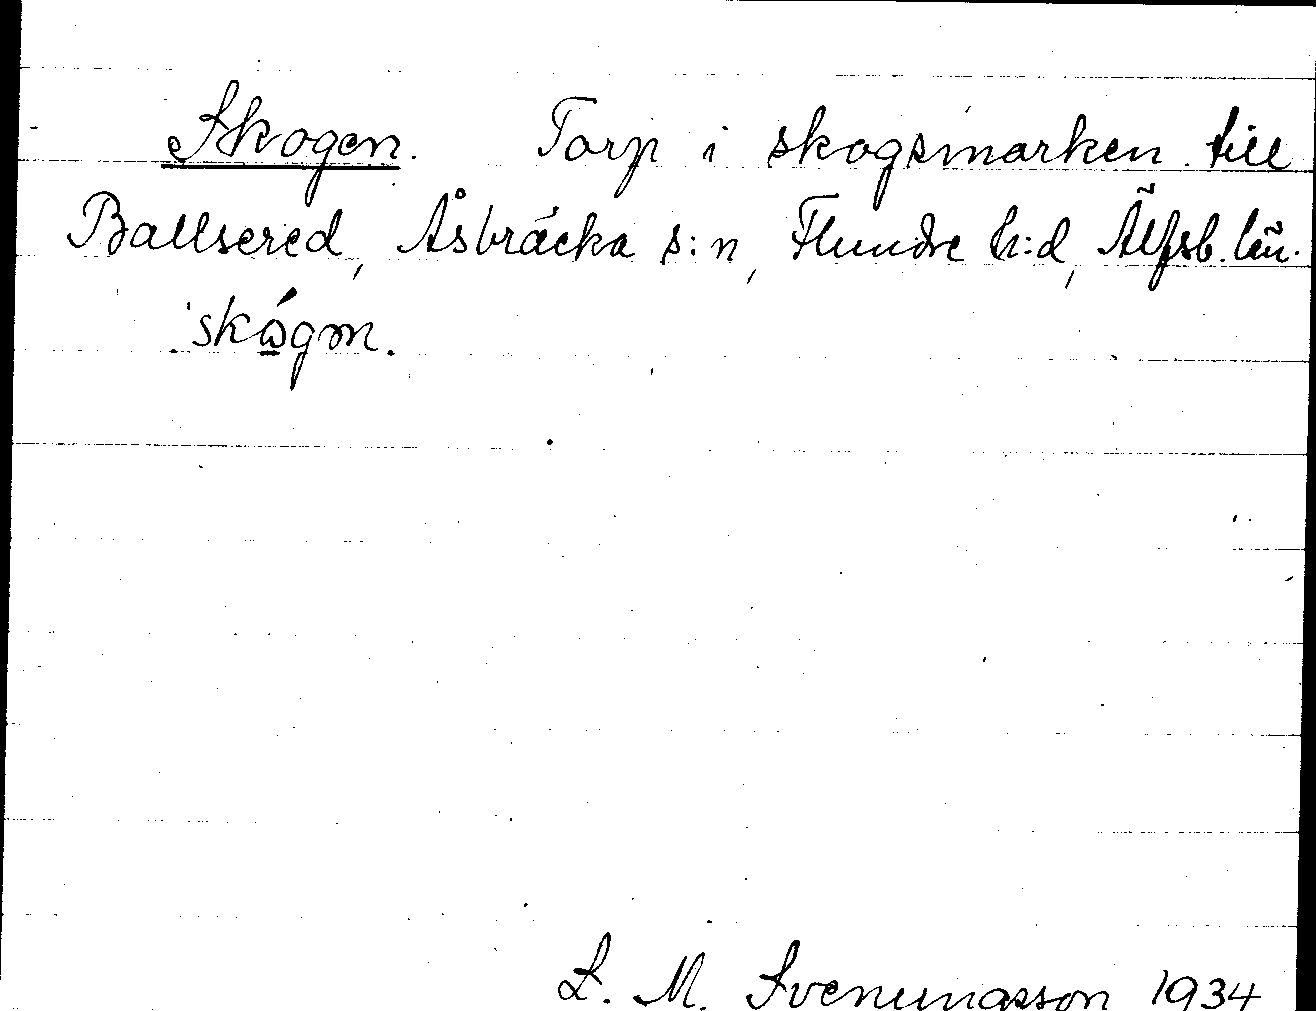 Skogen. Torp i skogsmarken till
Ballsered, Åsbräcka s:n, Flundre h:d, Älfsb. län.
skógən.
L. M. Svenungsson 1934